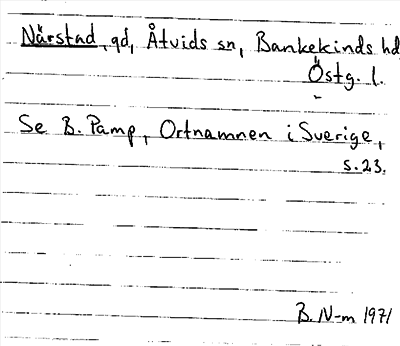 Närstad, gd, Åtvids sn, Bankekinds hd,
Östg. l.
Se B. Pamp, Ortnamnen i Sverige,
s. 23.
B. N-m 1971